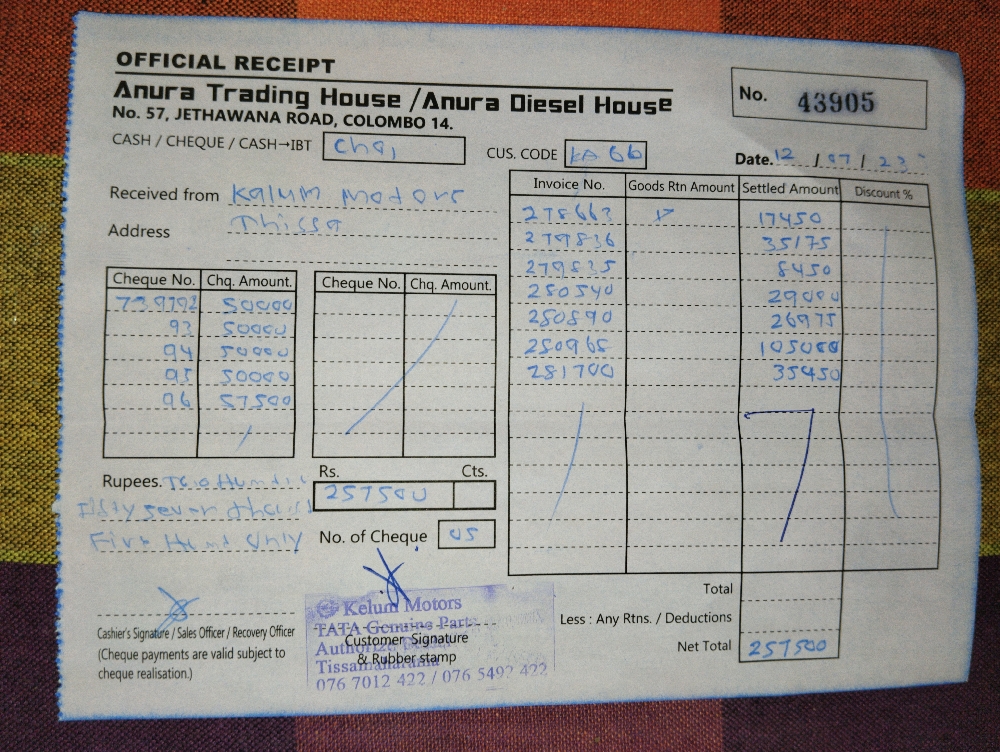 OFFICIAL RECEIPT
Anura Trading House / Anura Diesel House
No. 57, JETHAWANA ROAD, COLOMBO 14.
No. 43905
CASH / CHEQUE / CASH→IBT chq,
CUS. CODE KA 66
Date. 12 / 07 / 23
Received from Kalum Motors
Address Thissa
Cheque No. Chq. Amount. Cheque No. Chq. Amount.
739792 50000
93 50000
94 50000
95 50000
96 57500
Invoice No. Goods Rtn Amount Settled Amount Discount %
278663 17450
279836 35175
279835 8450
280540 29000
280890 26975
280968 105000
281700 35450
Rupees. Two Hund
Fifty seven thous
Five Hund Only
Rs. Cts.
257500
No. of Cheque 05
Total
Less : Any Rtns. / Deductions
Net Total 257500
Cashier's Signature / Sales Officer / Recovery Officer
(Cheque payments are valid subject to
cheque realisation.)
Kelum Motors
TATA Genuine Parts
Customer Signature
& Rubber stamp
Tissamaharama
076 7012 422 / 076 5492 422